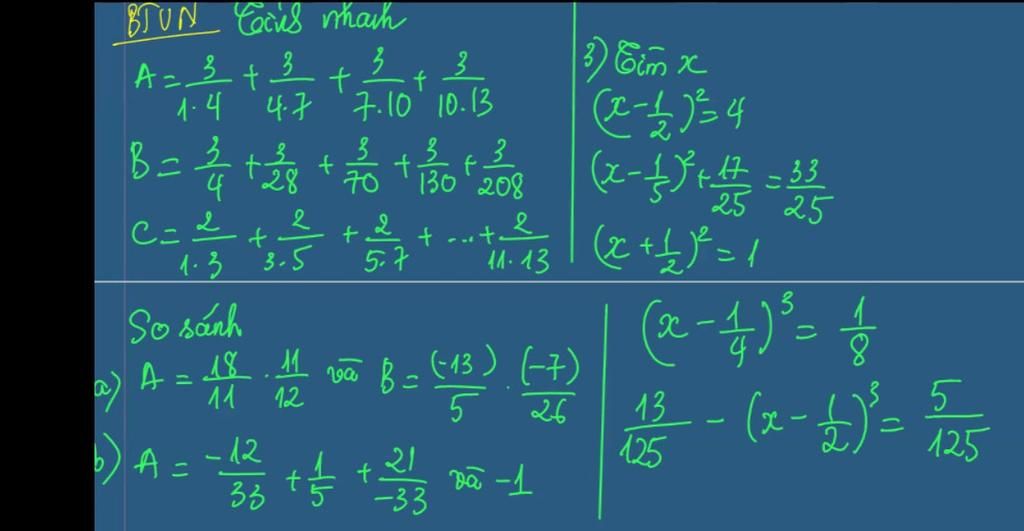 BTVN Tính nhanh
A = 3/1.4 + 3/4.7 + 3/7.10 + 3/10.13
B = 3/4 + 3/28 + 3/70 + 3/130 + 3/208
C = 2/1.3 + 2/3.5 + 2/5.7 + ... + 2/11.13
3) Tìm x
(x - 1/2)² = 4
(x - 1/5)² + 17/25 = 33/25
(x + 1/2)² = 1
So sánh
a) A = 18/11 . 11/12 và B = (-13)/5 . (-7)/26
b) A = -12/33 + 1/5 + 21/-33 và -1
(x - 1/4)³ = 1/8
13/125 - (x - 1/2)³ = 5/125